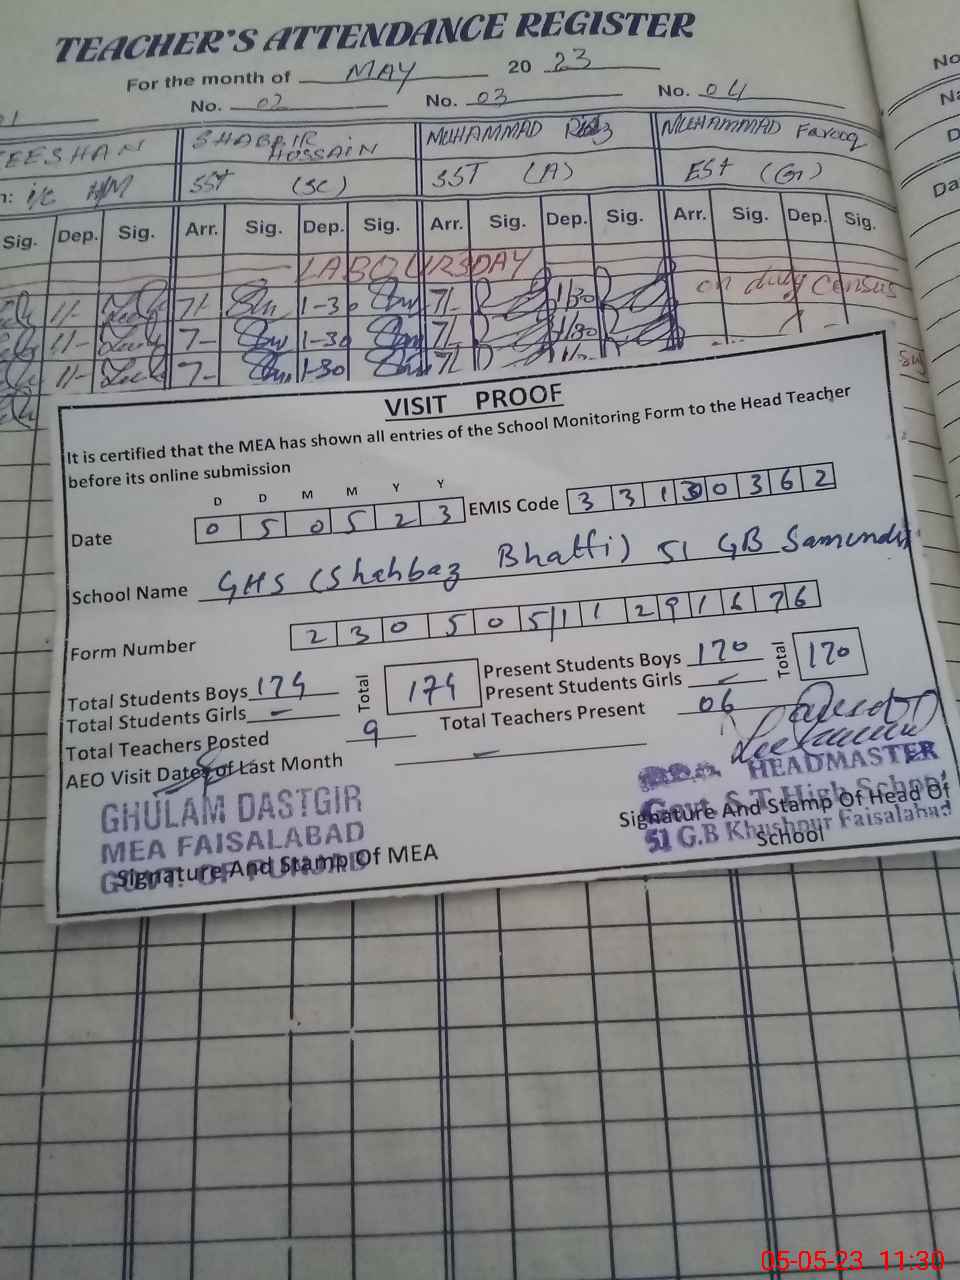 TEACHER'S ATTENDANCE REGISTER
For the month of MAY 20 23
No. 02 No. 03 No. 04
EESHAN SHABBIR HOSSAIN MUHAMMAD MUHAMMAD Farooq
I/C H/M SST (SC) SST (A) EST (Gn)
Sig. Dep. Sig. Arr. Sig. Dep. Sig. Arr. Sig. Dep. Sig. Arr. Sig. Dep. Sig.
LABOURSDAY
1/- 7/- 1-30 7/- 1/30 on duty census
1/- 7- 1-30 7/- 1/30
1/- 7- 1-30 7/-
VISIT PROOF
It is certified that the MEA has shown all entries of the School Monitoring Form to the Head Teacher
before its online submission
D D M M Y Y
Date 0 5 0 5 2 3 EMIS Code 3 3 1 3 0 3 6 2
School Name GHS (Shahbaz Bhatti) 51 GB Samundri
Form Number 2 3 0 5 0 5 1 1 2 9 1 6 7 6
Total Students Boys 174 Total 174 Present Students Boys 170 Total 170
Total Students Girls - Present Students Girls -
Total Teachers Posted 9 Total Teachers Present 06
AEO Visit Dates of Last Month -
GHULAM DASTGIR
MEA FAISALABAD
GOVT. OF PUNJAB
Signature And Stamp Of MEA
HEADMASTER
Govt. S.T High School
51 G.B Khushpur Faisalabad
Signature And Stamp Of Head Of
School
05-05-23 11:30